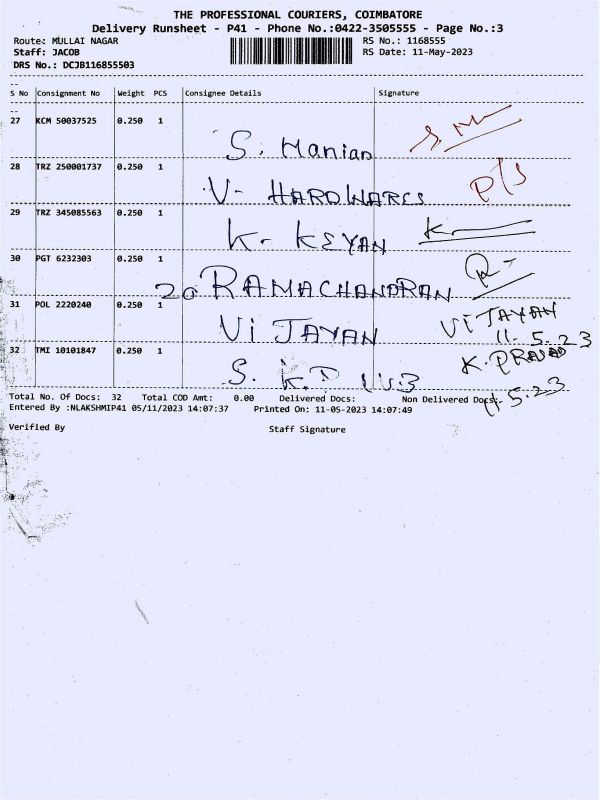 THE PROFESSIONAL COURIERS, COIMBATORE
Delivery Runsheet - P41 - Phone No.:0422-3505555 - Page No.:3
Route: MULLAI NAGAR RS No.: 1168555
Staff: JACOB RS Date: 11-May-2023
DRS No.: DCJB116855503
S No Consignment No Weight PCS Consignee Details Signature
27 KCM 50037525 0.250 1 S. Manian
28 TRZ 250001737 0.250 1 V- HARDWARES P/S
29 TRZ 345085563 0.250 1 K- KEYAN K
30 PGT 6232303 0.250 1 20 RAMACHANDRAN R-
31 POL 2220240 0.250 1 ViJAYAN ViJAYAN
11.5.23
32 TMI 10101847 0.250 1 S. K. K. PRASAD
11.5.23
Total No. Of Docs: 32 Total COD Amt: 0.00 Delivered Docs: Non Delivered Docs:
Entered By :NLAKSHMIP41 05/11/2023 14:07:37 Printed On: 11-05-2023 14:07:49
Verified By Staff Signature